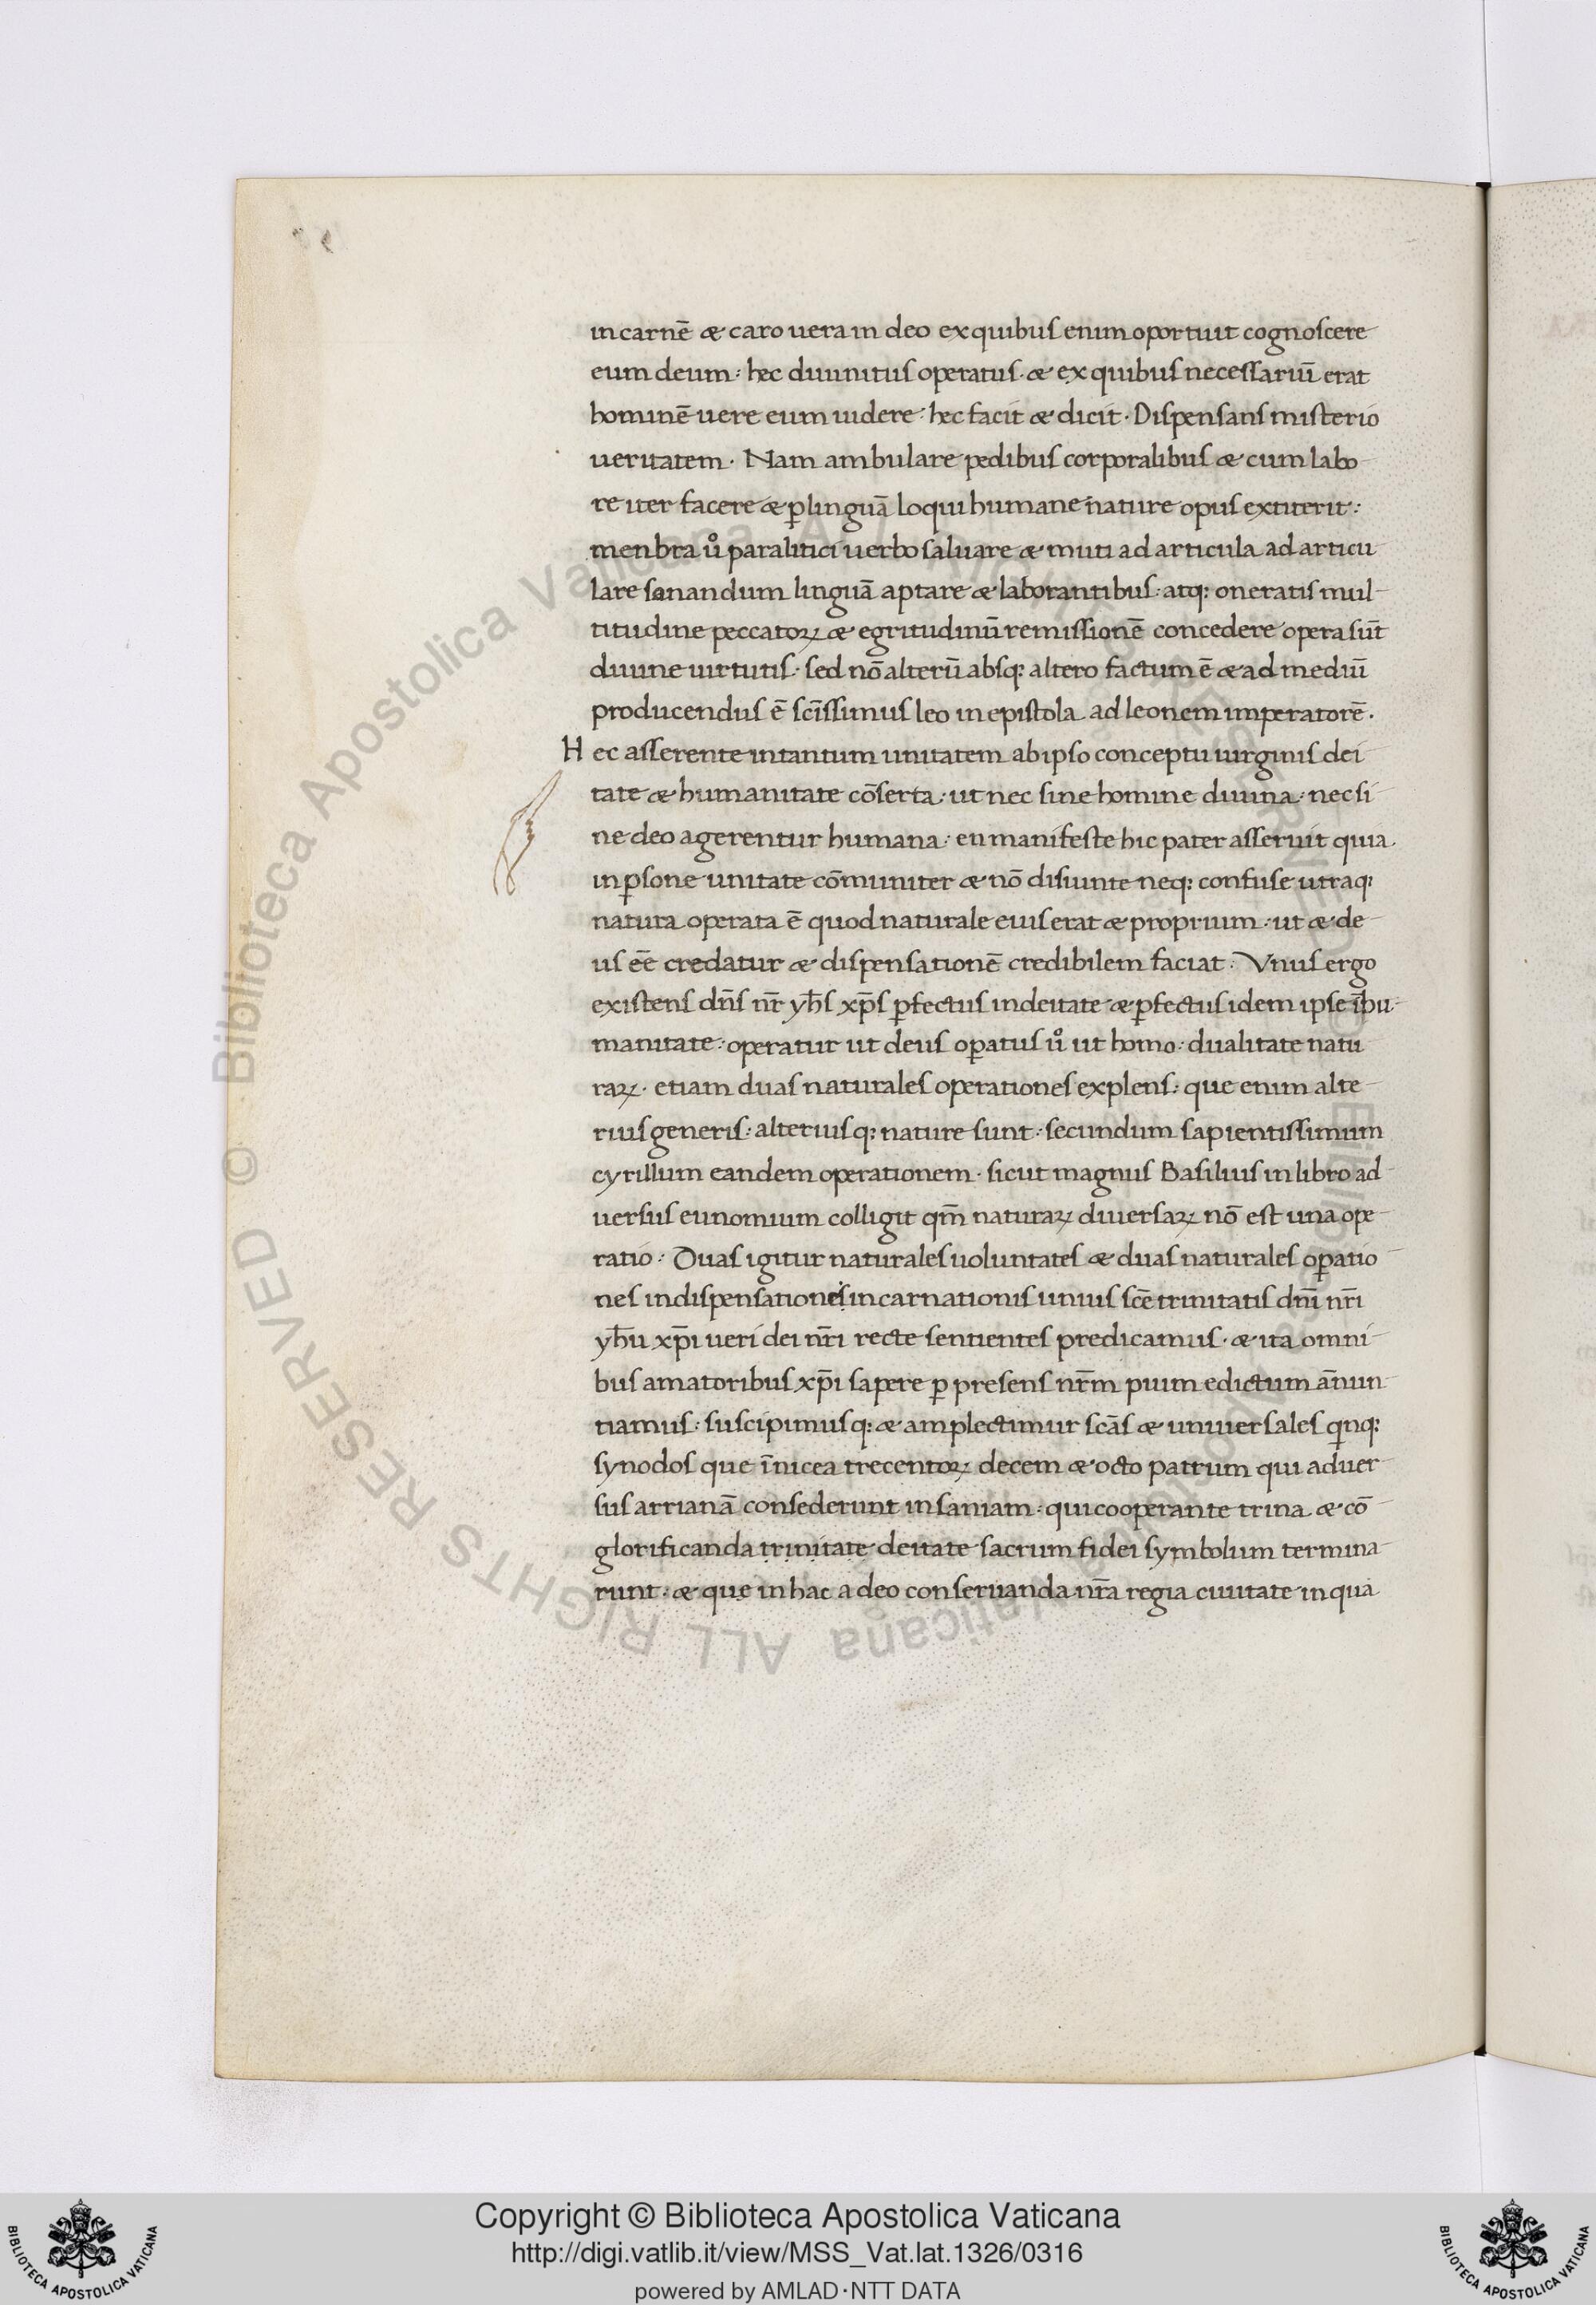 in carnē & caro uera in deo ex quibus enim oportuit cognoscere
eum deum: hec diuinitus operatus. & ex quibus necessariū erat
hominē uere eum uidere: hec facit & dicit. Dispensans misterio
ueritatem. Nam ambulare pedibus corporalibus & cum labo
re iter facere & ꝑ linguā loqui humane nature opus extiterit:
menbra uͦ paralitici uerbo saluare & muti ad articula ad articu
lare sonandum linguā aptare & laborantibus: atq: oneratis mul
titudine peccatoꝝ & egritudinū remissionē concedere opera sūt
diuine uirtutis. sed nō alterū absq: altero factum ē & ad mediū
producendus ē scīssimus leo in epistola ad leonem imperatorē.
Hec asserente in tantum unitatem ab ipso conceptu uirginis dei
tate & humanitate cōserta: ut nec sine homine diuina: nec si
ne deo agerentur humana: en manifeste hic pater asseruit quia
in ꝑsone unitate cōmuniter & nō disiunte neq: confuse utraq:
natura operata ē quod naturale eius erat & proprium: ut & de
us eē credatur & dispensationē credibilem faciat. Vnus ergo
existens dn̄s nr̄ yħs xp̄s ꝑfectus in deitate & ꝑfectus idem ipse ī hu
manitate: operatur ut deus oꝑatus uͦ ut homo: dualitate natu
raꝝ. etiam duas naturales operationes explens: que enim alte
rius generis: alterius q: nature sunt: secundum sapientissimum
cyrillum eandem operationem. sicut magnus Basilius in libro ad
uersus eunomium colligit qm̄ naturaꝝ diuersaꝝ nō est una ope
ratio: Duas igitur naturales uoluntates & duas naturales oꝑatio
nes in dispensationes incarnationis unius scē trinitatis dn̄i nr̄i
yħu xp̄i ueri dei nr̄i recte sentientes predicamus. & ita omni
bus amatoribus xp̄i sapere ꝑ presens nr̄m pium edictum ānun
tiamus: suscipimus q: & amplectimur scās & uniuersales qinq:
synodos que ī nicea trecentoꝝ decem & octo patrum qui aduer
sus arrianā consederunt insaniam: qui cooperante trina & cō
glorificanda trinitate deitate sacrum fidei symbolum termina
runt: & que in hac a deo conseruanda nr̄a regia ciuitate in qua
Copyright © Biblioteca Apostolica Vaticana
http://digi.vatlib.it/view/MSS_Vat.lat.1326/0316
powered by AMLAD·NTT DATA
BIBLIOTECA APOSTOLICA VATICANA
BIBLIOTECA APOSTOLICA VATICANA